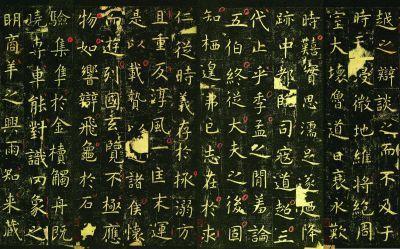 越之辯談之而不及于
時天微地維將絕周
室大壞魯道日衰永歎
時艱實思濡足遂降
跡中都司寇道超三
代止乎季孟之閒羞論
五伯終從大夫之後固
知栖遑弗已志在於求
仁從時義存於拯溺方
且重反淳風一匡末運
是以載贄以諸侯懷
而遊列國玄覽不極應
物如響辯飛龜於石
驗集隼於金櫝觸舟既
曉專車能對識罔象之
明商羊之興雨知來藏